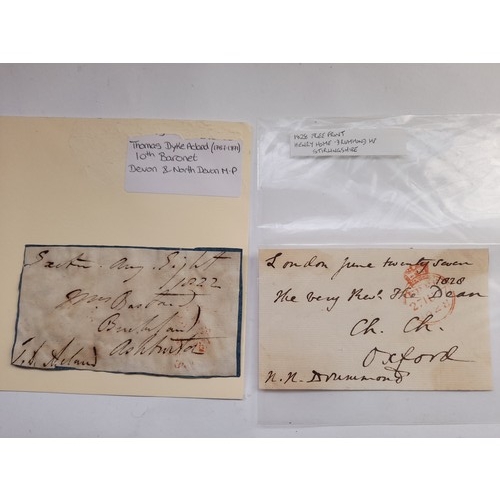 Thomas Dyke Acland
10th Baronet
Devon & North Devon M.P
Exeter Aug. Eight
1822
Mrs
Ashburton
T. D. Acland
FREE FRONT
HENRY HOME DRUMMOND MP
STIRLINGSHIRE
London June twenty seven
1828
The very Revd. The Dean
Ch. Ch.
Oxford
H. H. Drummond